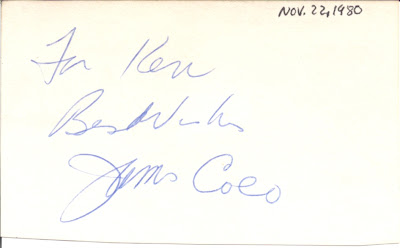 NOV. 22, 1980
For Ken
Best Wishes
James Coco